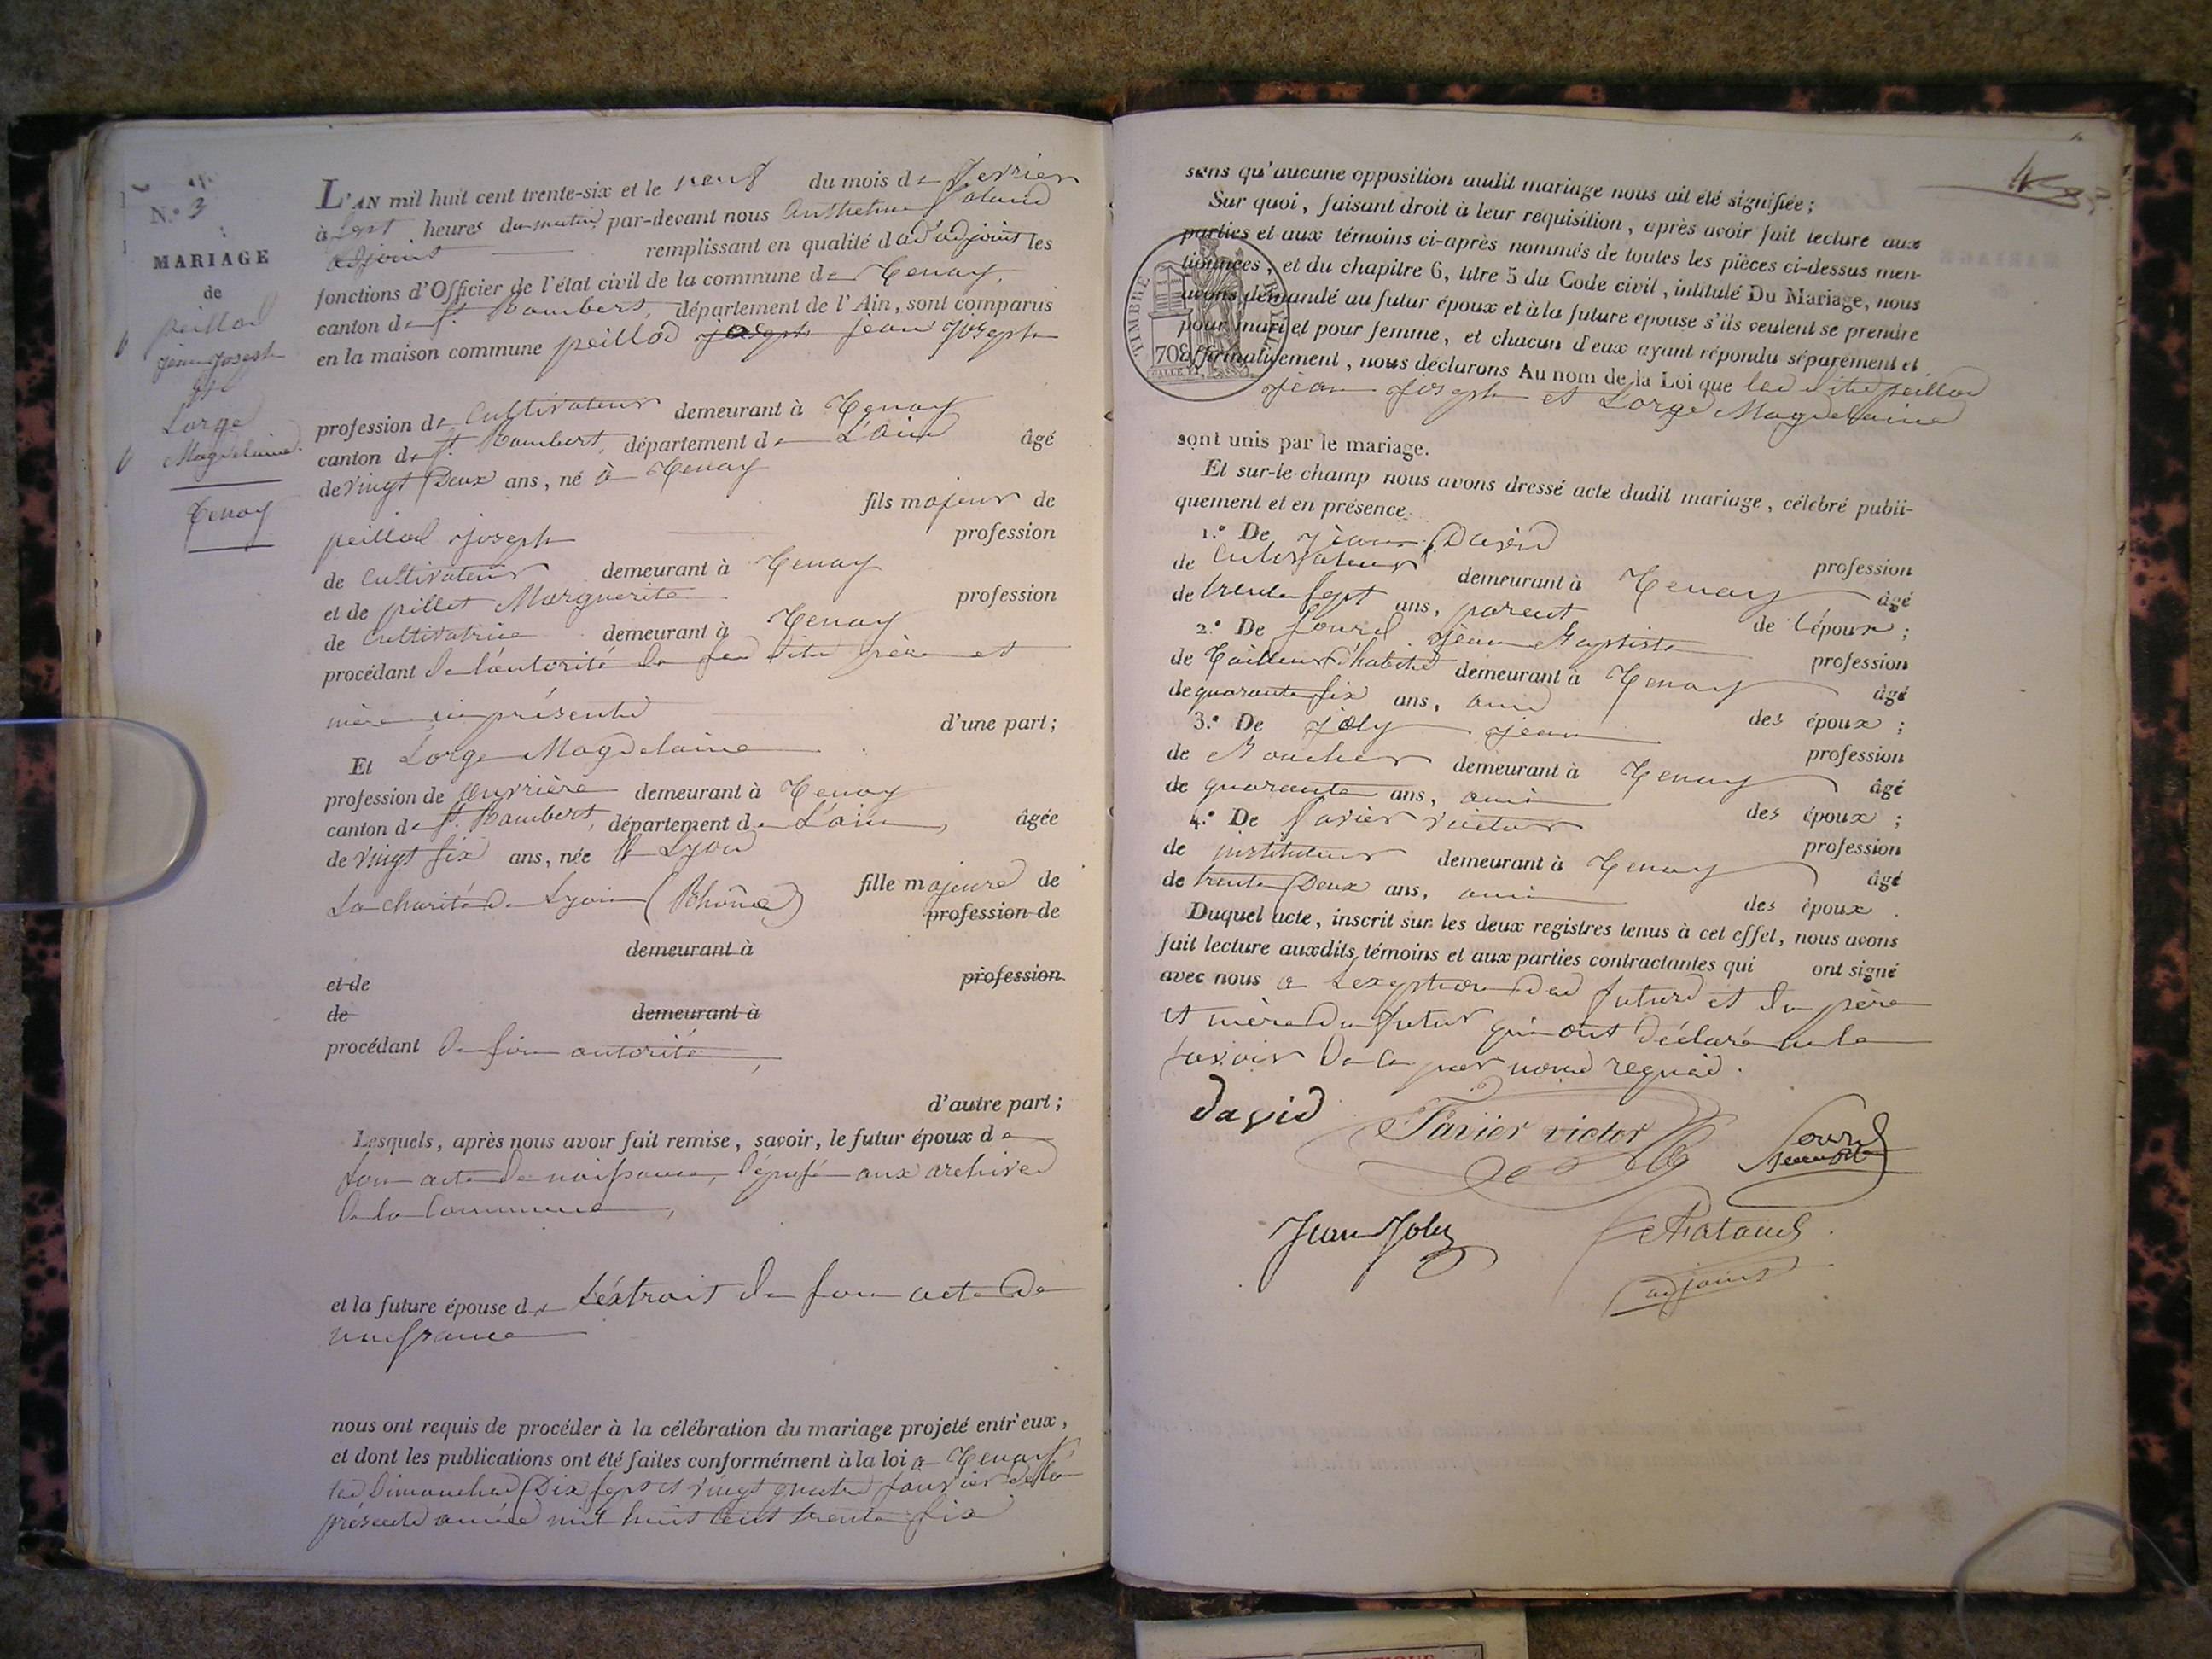 N.° 3
MARIAGE
de
peillod
jean joseph
et
Lorge
Magdelaine
Tenay
L'AN mil huit cent trente-six et le neuf du mois de fevrier
à sept heures du matin par-devant nous Anthelme
adjoint remplissant en qualité d'adjoint les
fonctions d'Officier de l'état civil de la commune de Tenay,
canton de St. Rambert, département de l'Ain, sont comparus
en la maison commune peillod joseph jean joseph
profession de Cultivateur demeurant à Tenay
canton de St. Rambert, département de L'ain âgé
de vingt Deux ans, né à Tenay
fils majeur de
peillod joseph profession
de Cultivateur demeurant à Tenay
et de pillet Marguerite profession
de Cultivatrice demeurant à Tenay
procédant de l'autorité de ses dits père et
mère ici présents d'une part;
Et Lorge Magdelaine
profession de ouvrière demeurant à Tenay
canton de St. Rambert, département de L'ain, âgée
de vingt six ans, née à Lyon
fille majeure de
La charité de Lyon (Rhône) profession de
demeurant à
et de profession
de demeurant à
procédant de son autorité,
d'autre part;
Lesquels, après nous avoir fait remise, savoir, le futur époux de
son acte de naissance, déposé aux archives
de la Commune,
et la future épouse de L'éxtrait de son acte de
naissance
nous ont requis de procéder à la célébration du mariage projeté entr'eux,
et dont les publications ont été faites conformément à la loi à Tenay
les Dimanches Dix sept et vingt quatre janvier de la
présente année mil huit cent trente six
sens qu'aucune opposition audit mariage nous ait été signifiée;
Sur quoi, faisant droit à leur requisition, après avoir fait lecture aux
parties et aux témoins ci-après nommés de toutes les pièces ci-dessus men-
tionnées, et du chapitre 6, titre 5 du Code civil, intitulé Du Mariage, nous
avons demandé au futur époux et à la future épouse s'ils veulent se prendre
pour mari et pour femme, et chacun d'eux ayant répondu séparement et
affirmativement, nous déclarons Au nom de la Loi que les dits peillod
jean joseph et Lorge Magdelaine
TIMBRE ROYAL
70c
sont unis par le mariage.
Et sur-le-champ nous avons dressé acte dudit mariage, célébré publi-
quement et en présence
1.° De jean David profession
de Cultivateur demeurant à Tenay âgé
de trente sept ans, parent de l'époux;
2.° De jean Baptiste profession
de Tailleur d'habits demeurant à Tenay âgé
de quarante six ans, ami des époux;
3.° De joly jean profession
de Boucher demeurant à Tenay âgé
de quarante ans, ami des époux;
4.° De favier victor profession
de instituteur demeurant à Tenay âgé
de trente Deux ans, ami des époux.
Duquel acte, inscrit sur les deux registres tenus à cet effet, nous avons
fait lecture auxdits témoins et aux parties contractantes qui ont signé
avec nous à L'exeption des futurs et du père
et mère du futur qui ont déclaré ne le
savoir de ce par nous requis.
david
Favier victor
Jean Joly
adjoint